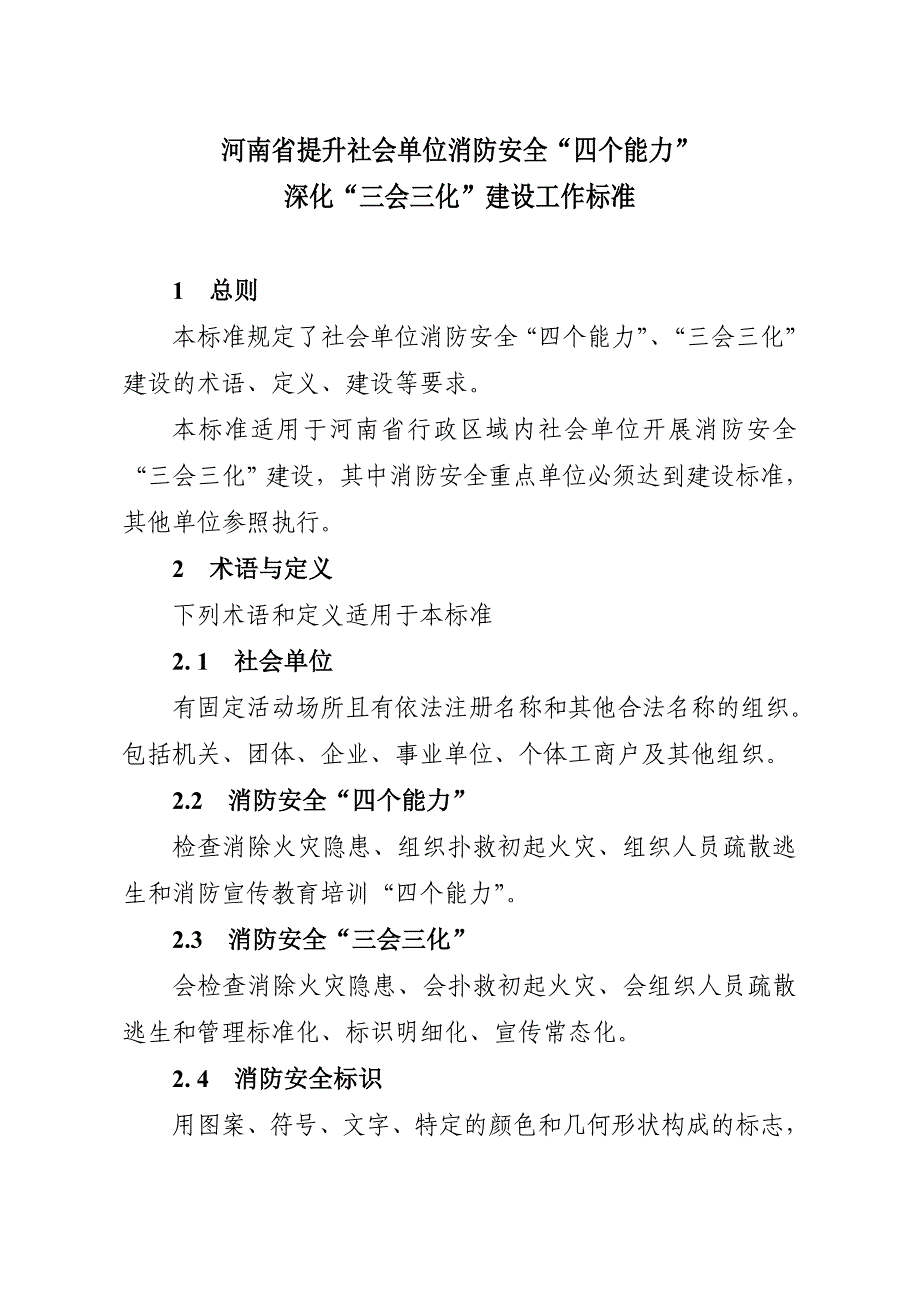 河南省提升社会单位消防安全“四个能力”
深化“三会三化”建设工作标准
1　总则
本标准规定了社会单位消防安全“四个能力”、“三会三化”
建设的术语、定义、建设等要求。
本标准适用于河南省行政区域内社会单位开展消防安全
“三会三化”建设，其中消防安全重点单位必须达到建设标准，
其他单位参照执行。
2　术语与定义
下列术语和定义适用于本标准
2.1　社会单位
有固定活动场所且有依法注册名称和其他合法名称的组织。
包括机关、团体、企业、事业单位、个体工商户及其他组织。
2.2　消防安全“四个能力”
检查消除火灾隐患、组织扑救初起火灾、组织人员疏散逃
生和消防宣传教育培训“四个能力”。
2.3　消防安全“三会三化”
会检查消除火灾隐患、会扑救初起火灾、会组织人员疏散
逃生和管理标准化、标识明细化、宣传常态化。
2.4　消防安全标识
用图案、符号、文字、特定的颜色和几何形状构成的标志，